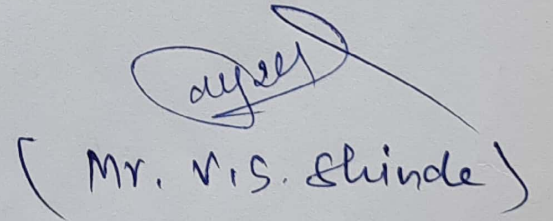 ( Mr. V.S. Shinde )